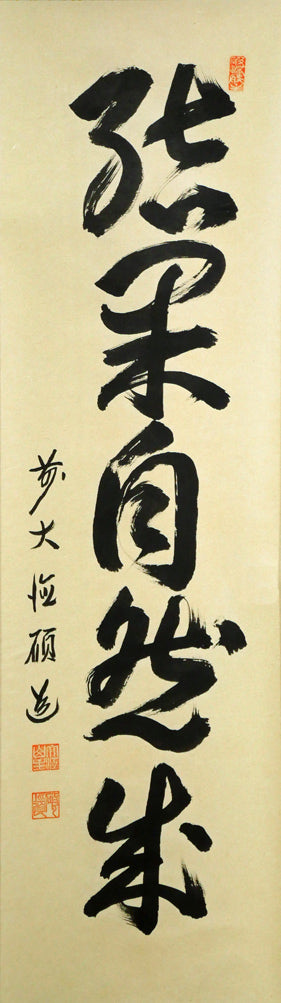 結果自然成
前大徳碩道